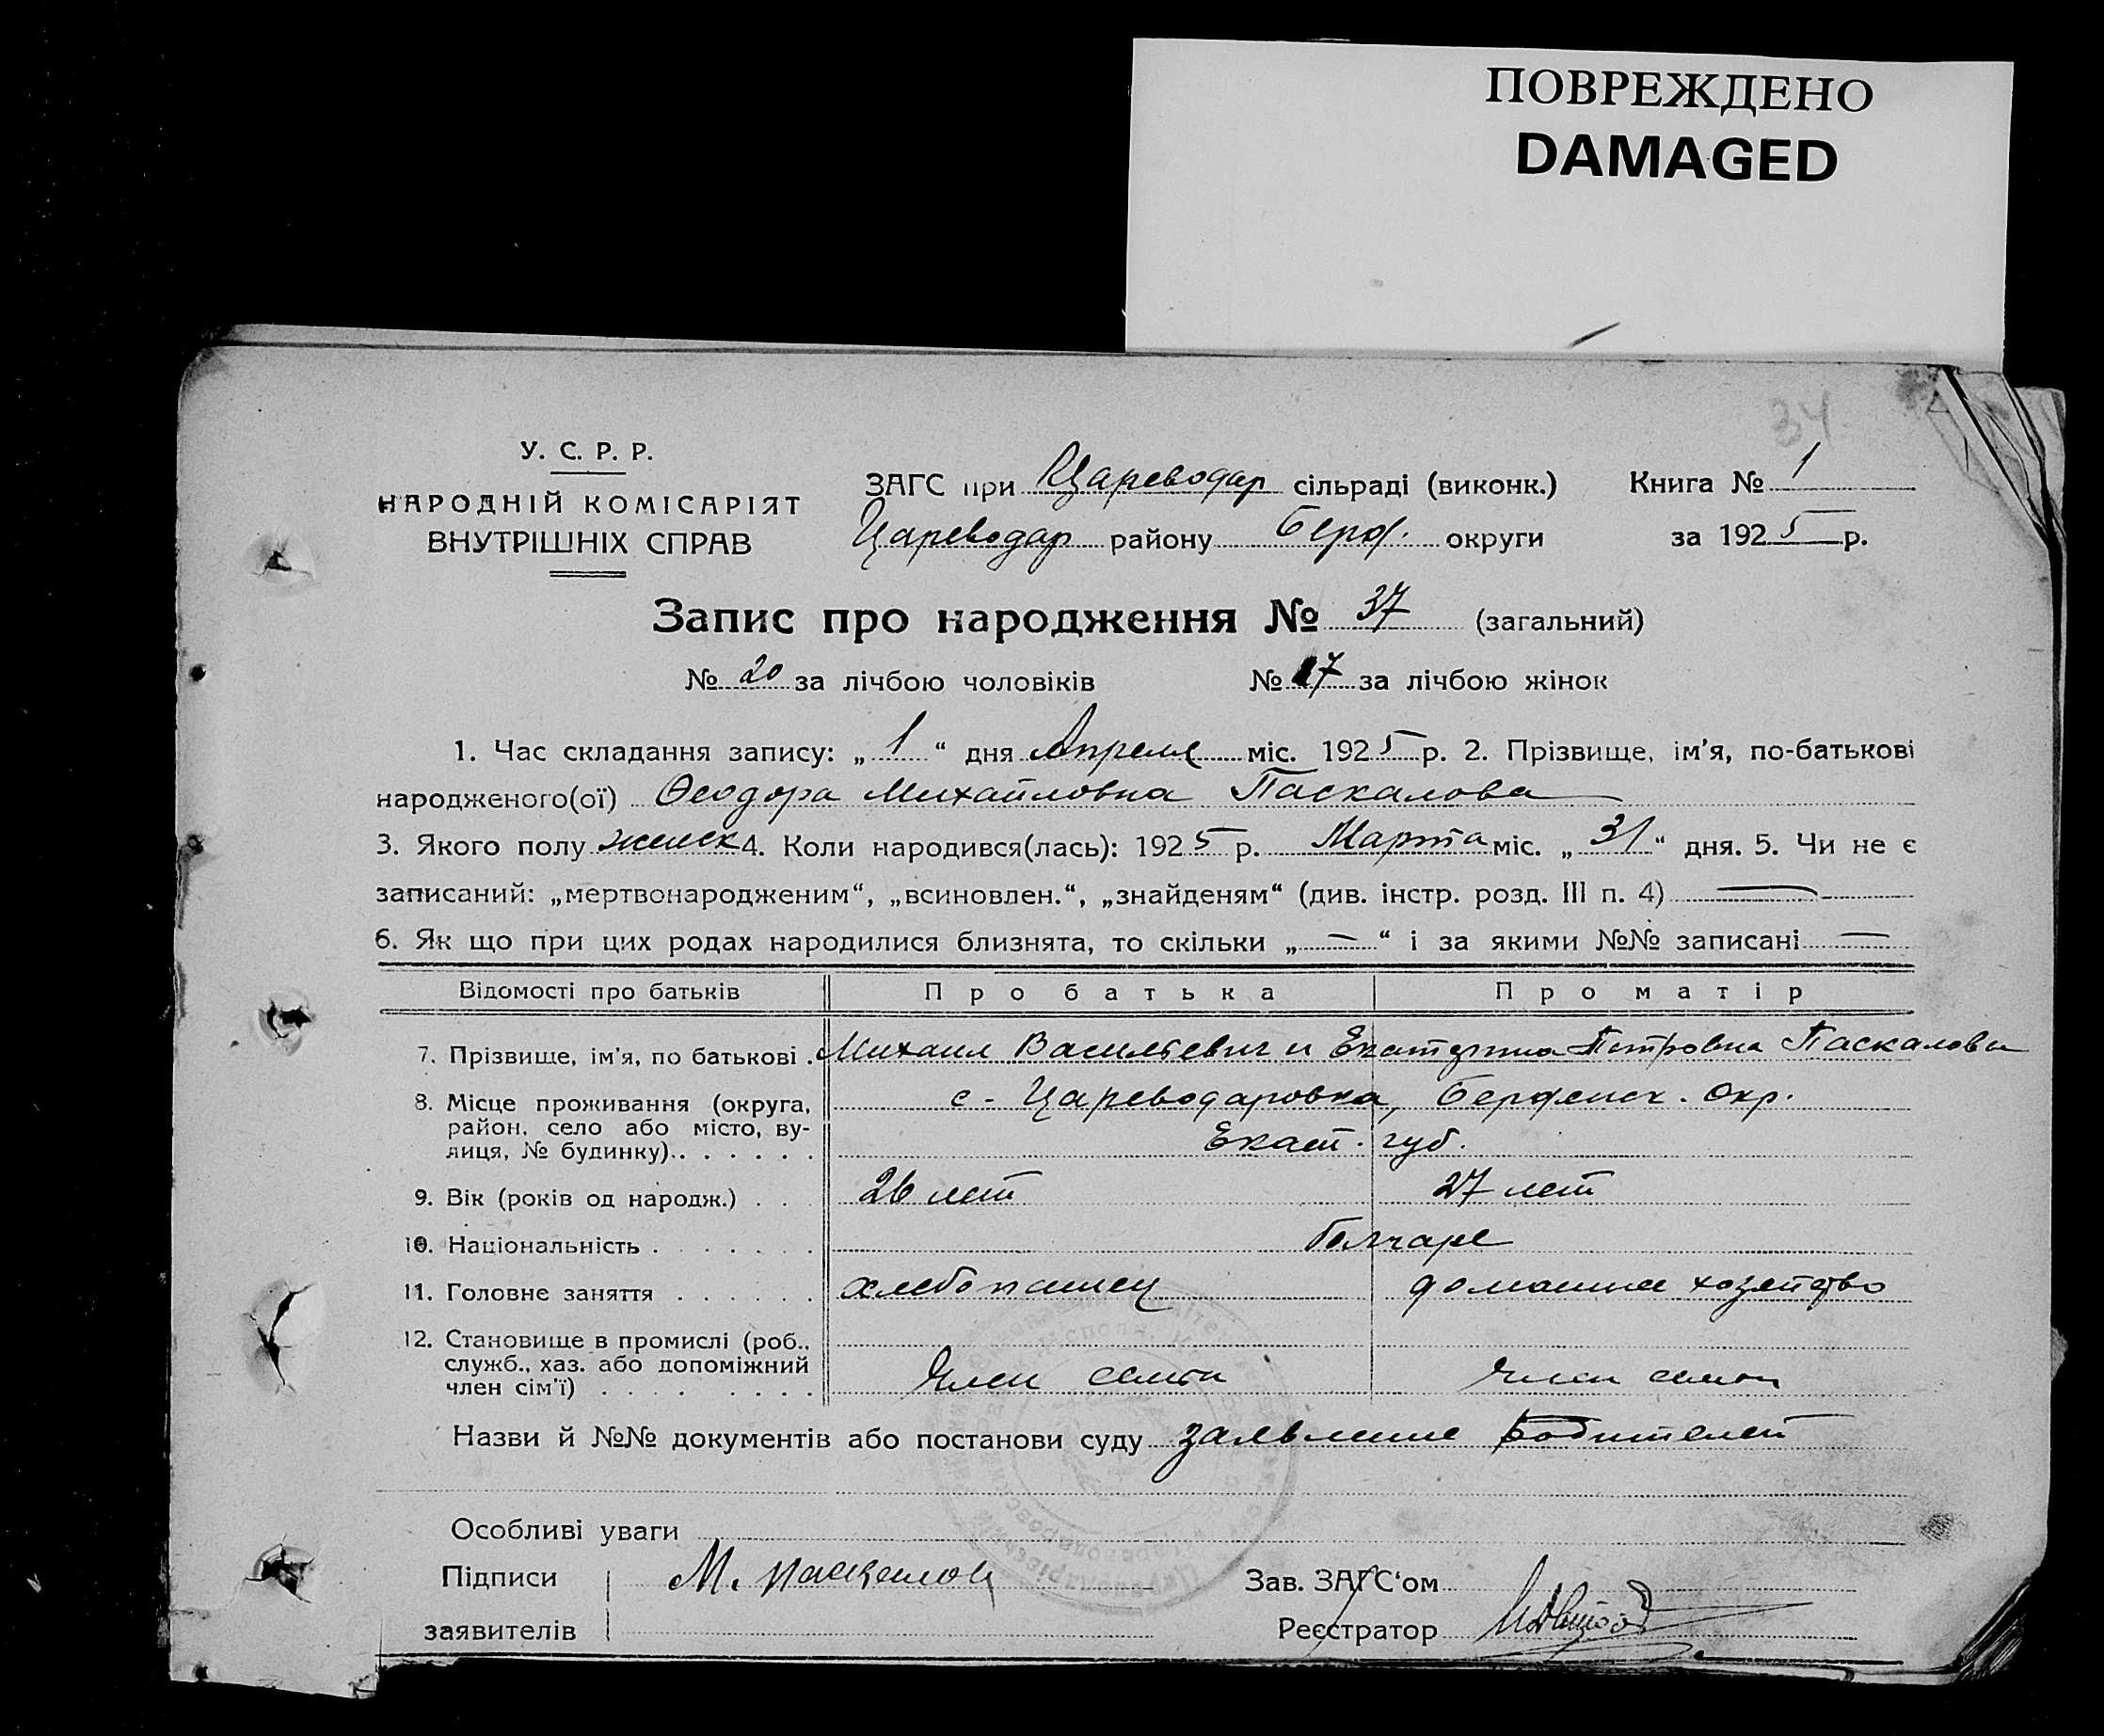 ПОВРЕЖДЕНО
DAMAGED
34
У. С. Р. Р.
НАРОДНІЙ КОМІСАРІЯТ
ВНУТРІШНІХ СПРАВ
ЗАГС при Цареводар сільраді (виконк.) Книга № 1
Цареводар району Берд. округи за 1925 р.
Запис про народження № 37 (загальний)
№ 20 за лічбою чоловіків № 17 за лічбою жінок
1. Час складання запису: „1“ дня Апреля міс. 1925 р. 2. Прізвище, ім'я, по-батькові
народженого(ої) Ѳеодора Михайловна Паскалова
3. Якого полу женск 4. Коли народився(лась): 1925 р. Марта міс. „31“ дня. 5. Чи не є
записаний: „мертвонародженим“, „всиновлен.“, „знайденям“ (див. інстр. розд. III п. 4) —
6. Як що при цих родах народилися близнята, то скільки „—“ і за якими №№ записані —
Відомості про батьків Про батька Про матір
7. Прізвище, ім'я, по батькові . Михаил Васильевич и Екатерина Петровна Паскалова
8. Місце проживання (округа, с - Цареводаровка, Бердянск. Окр.
район, село або місто, ву-
лиця, № будинку). . . . . . . Екат. губ.
9. Вік (років од народж.) . . . 26 лет 27 лет
10. Національність . . . . . . . болгаре
11. Головне заняття . . . . . . хлебопашец домашнее хозяйство
12. Становище в промислі (роб.,
служб., хаз. або допоміжний
член сім'ї) . . . . . . . . . Член семьи член семьи
Назви й №№ документів або постанови суду заявление родителей
Особливі уваги
Підписи М. Паскалов Зав. ЗАГС'ом
заявителів Реєстратор